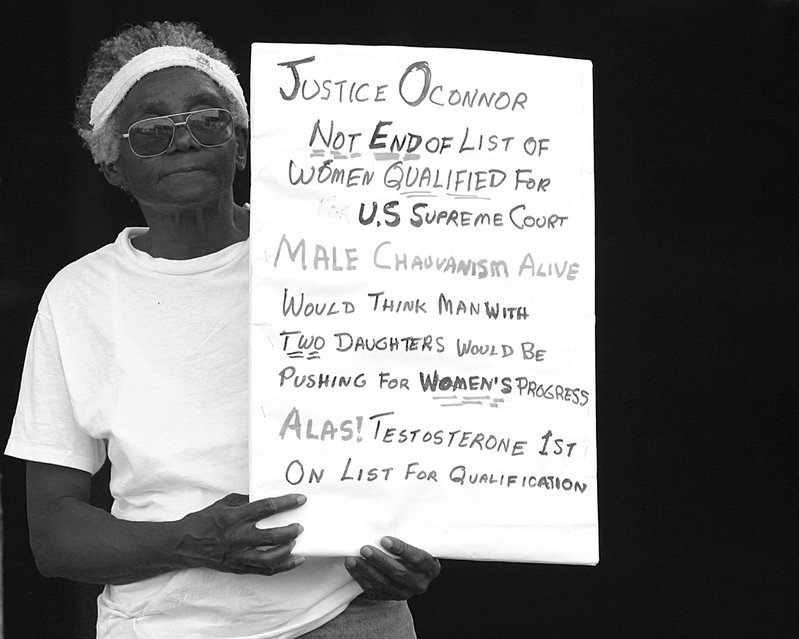 JUSTICE OCONNOR
NOT END OF LIST OF
WOMEN QUALIFIED FOR
FOR U.S SUPREME COURT
MALE CHAUVANISM ALIVE
WOULD THINK MAN WITH
TWO DAUGHTERS WOULD BE
PUSHING FOR WOMEN'S PROGRESS
ALAS! TESTOSTERONE 1ST
ON LIST FOR QUALIFICATION